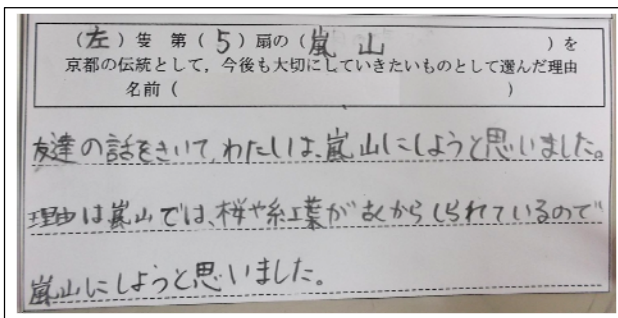 （左）隻 第（5）扇の（嵐山）を
京都の伝統として，今後も大切にしていきたいものとして選んだ理由
名前（　　　）
友達の話をきいて、わたしは、嵐山にしようと思いました。
理由は嵐山では、桜や紅葉が古くからしられているので
嵐山にしようと思いました。